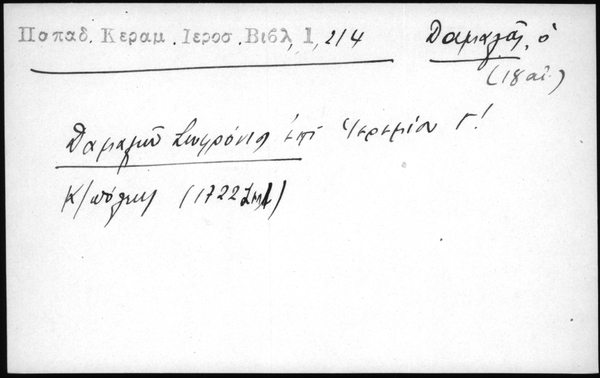 Παπαδ. Κεραμ. Ιεροσ. Βιβλ, 1, 214
Δαμαλῶν, ὁ
(18 αἰ.)
Δαμαλῶν Σωφρόνιος ἐπὶ Ἱερεμίου Γ!
Κ/πόλεως (1722